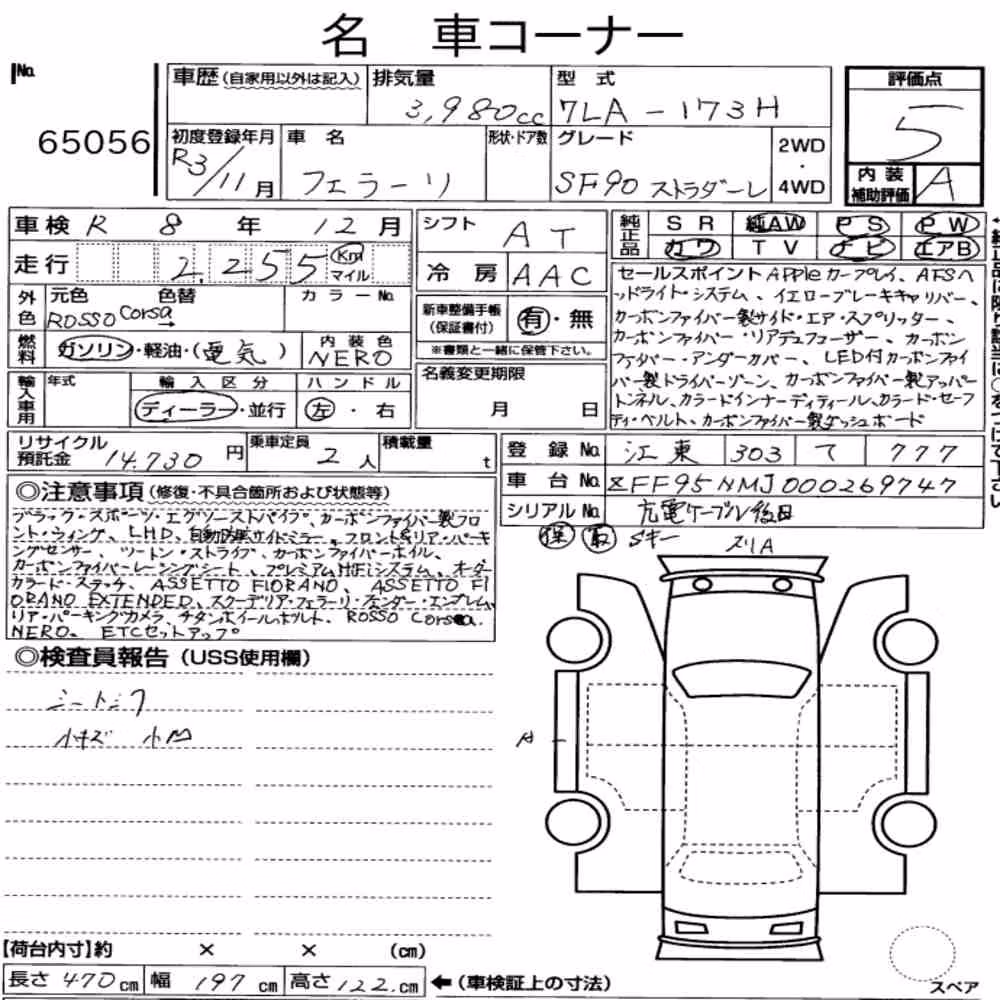 名 車コーナー
No.
65056
車歴(自家用以外は記入)
排気量
3,980cc
型式
7LA-173H
評価点
5
初度登録年月
R3/11月
車名
フェラーリ
形状・ドア数
グレード
SF90 ストラダーレ
2WD
・
4WD
内装
補助評価
A
車検 R 8 年 12 月
シフト
AT
純正品
SR 純AW PS PW
カワ TV ナビ エアB
走行
2,255
Km
マイル
冷房
AAC
外色
元色 色替
ROSSO corsa→
カラーNo.
新車整備手帳
(保証書付)
有・無
※書類と一緒に保管下さい。
燃料
ガソリン・軽油・(電気)
内装色
NERO
名義変更期限
月 日
輸入車用
年式
輸入区分
ディーラー・並行
ハンドル
左・右
セールスポイント Appleカープレイ、AFSヘ
ッドライト・システム、イエローブレーキキャリパー、
カーボンファイバー製サイド・エア・スプリッター、
カーボンファイバー・リアディフューザー、カーボン
ファイバー・アンダーカバー、LED付カーボンファイ
バー製ドライバーゾーン、カーボンファイバー製アッパー
トンネル、カラードインナーディティール、カラード・セーフ
ティ・ベルト、カーボンファイバー製ダッシュボード
リサイクル
預託金
14.730 円
乗車定員
2 人
積載量
t
登録No.
江東 303 て 777
車台No.
ZFF95NMJ000269747
シリアルNo.
充電ケーブル後日
保 取 Sキー
メリA
◎注意事項(修復・不具合箇所および状態等)
ブラック・スポーツ・エグゾーストパイプ、カーボンファイバー製フロ
ント・ウィング、LHD、自動防眩サイドミラー、フロント&リア・パーキ
ングセンサー、ツートン・ストライプ、カーボンファイバーホイル、
カーボンファイバーレーシングシート、プレミアムHiFiシステム、オーダー
カラード・ステッチ、ASSETTO FIORANO、ASSETTO FI
ORANO EXTENDED、スクーデリア・フェラーリ・フェンダー・エンブレム、
リア・パーキングカメラ、チタンホイールボルト、ROSSO Corsa.
NERO。ETCセットアップ
◎検査員報告(USS使用欄)
シートシワ
小キズ 小凹
A
【荷台内寸】約 × × (cm)
長さ 470cm 幅 197cm 高さ 122.cm ←(車検証上の寸法)
スペア